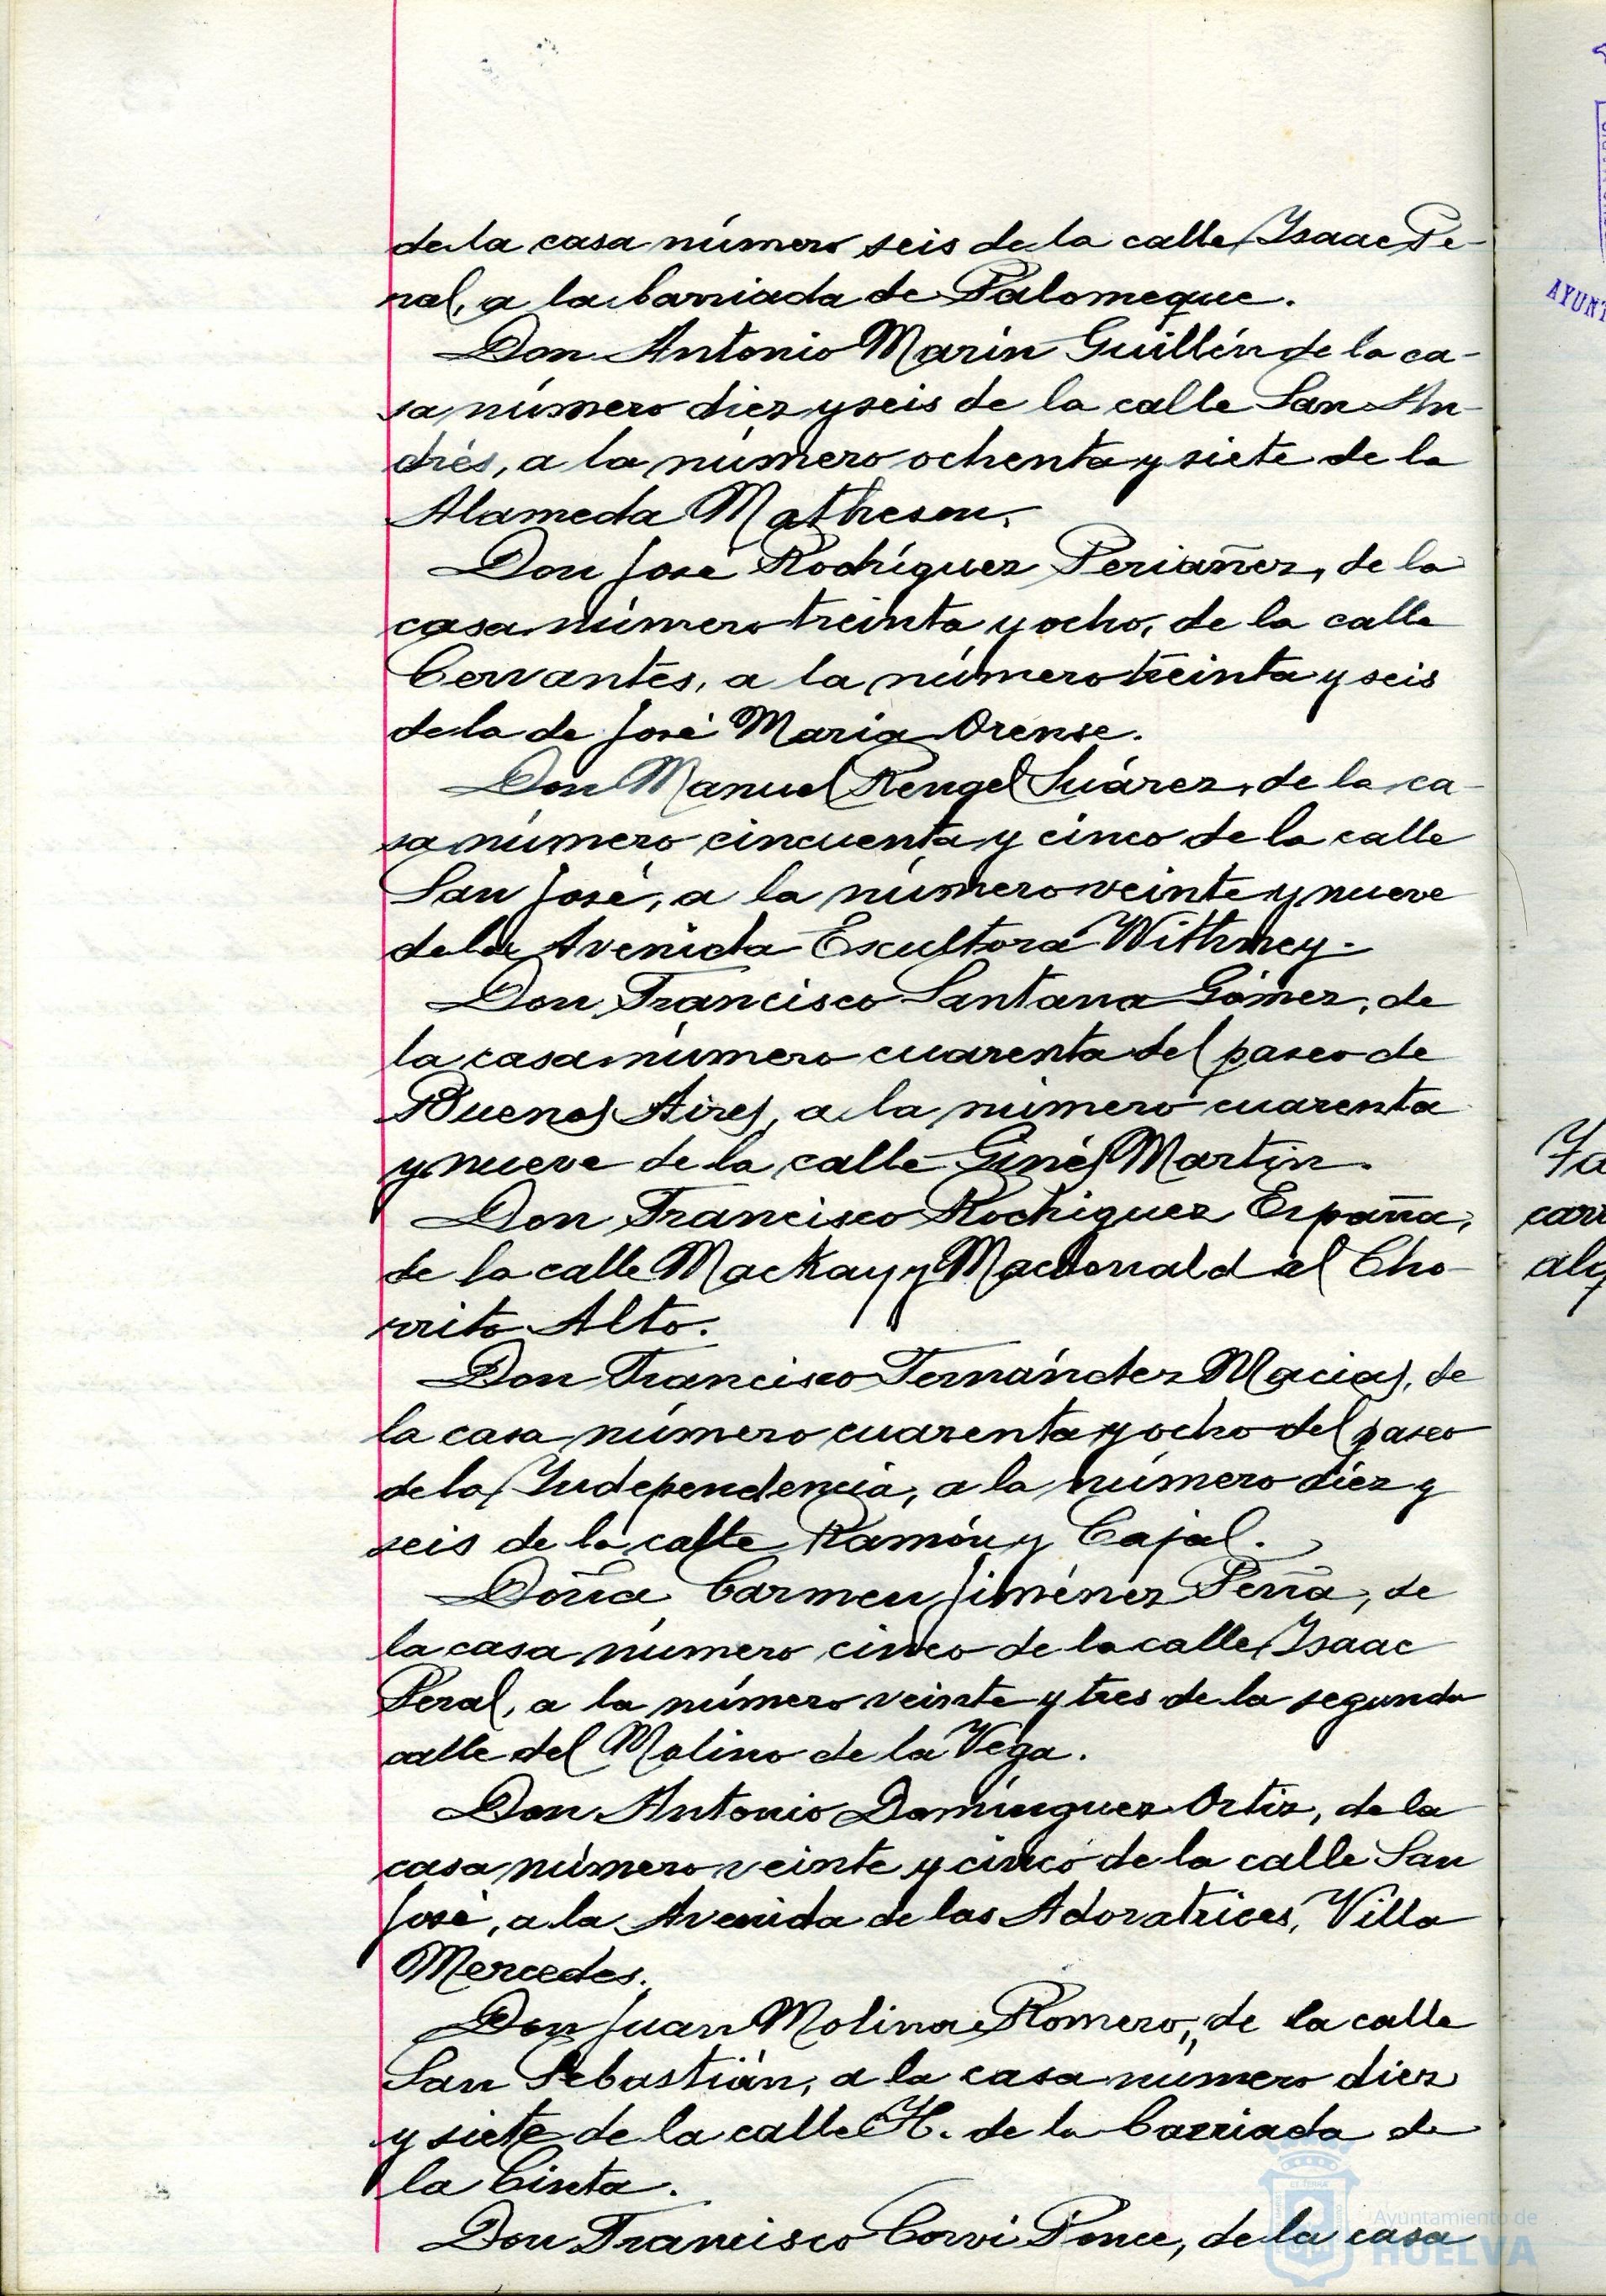 de la casa número seis de la calle Isaac Pe-
ral, a la barriada de Palomeque.
Don Antonio Marín Guillén de la ca-
sa número diez y seis de la calle San An-
drés, a la número ochenta y siete de la
Alameda Matheson.
Don José Rodríguez Periañez, de la
casa número treinta y ocho, de la calle
Cervantes, a la número treinta y seis
de la de José María Orense.
Don Manuel Rengel Suárez, de la ca-
sa número cincuenta y cinco de la calle
San José, a la número veinte y nueve
de la Avenida Escultora Withney.
Don Francisco Santana Gómez, de
la casa número cuarenta del paseo de
Buenos Aires, a la número cuarenta
y nueve de la calle Ginés Martín.
Don Francisco Rodríguez España,
de la calle Mackay y Macdonald al Cho-
rrito Alto.
Don Francisco Fernández Macias, de
la casa número cuarenta y ocho del paseo
de la Independencia, a la número diez y
seis de la calle Ramón y Cajal.
Doña Carmen Jiménez Peña, de
la casa número cinco de la calle Isaac
Peral, a la número veinte y tres de la segunda
calle del Molino de la Vega.
Don Antonio Domínguez Ortiz, de la
casa número veinte y cinco de la calle San
José, a la Avenida de las Adoratrices, Villa
Mercedes.
Don Juan Molina Romero, de la calle
San Sebastián, a la casa número diez
y siete de la calle H. de la barriada de
la Cinta.
Don Francisco Corvi Ponce, de la casa
Ayuntamiento de
HUELVA